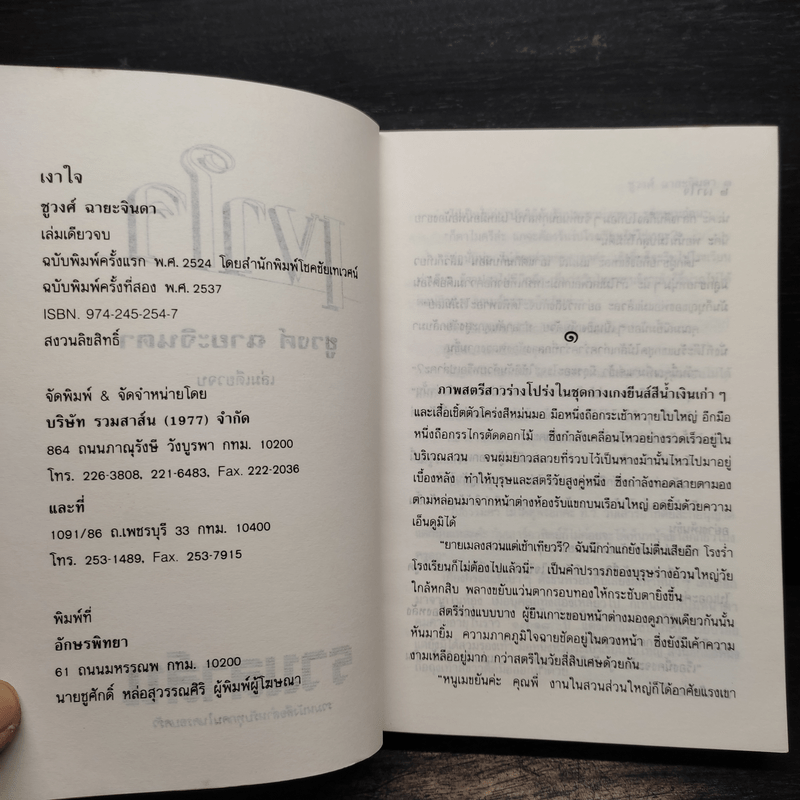 เงาใจ
ชูวงศ์ ฉายะจินดา
เล่มเดียวจบ
ฉบับพิมพ์ครั้งแรก พ.ศ. 2524 โดยสำนักพิมพ์โชคชัยเทเวศน์
ฉบับพิมพ์ครั้งที่สอง พ.ศ. 2537
ISBN. 974-245-254-7
สงวนลิขสิทธิ์
จัดพิมพ์ & จัดจำหน่ายโดย
บริษัท รวมสาส์น (1977) จำกัด
864 ถนนภาณุรังษี วังบูรพา กทม. 10200
โทร. 226-3808, 221-6483, Fax. 222-2036
และที่
1091/86 ถ.เพชรบุรี 33 กทม. 10400
โทร. 253-1489, Fax. 253-7915
พิมพ์ที่
อักษรพิทยา
61 ถนนมหรรณพ กทม. 10200
นายชูศักดิ์ หล่อสุวรรณศิริ ผู้พิมพ์ผู้โฆษณา
๑
ภาพสตรีสาวร่างโปร่งในชุดกางเกงยีนส์สีน้ำเงินเก่า ๆ
และเสื้อเชิ้ตตัวโคร่งสีหม่นมอ มือหนึ่งถือกระเช้าหวายใบใหญ่ อีกมือ
หนึ่งถือกรรไกรตัดดอกไม้ ซึ่งกำลังเคลื่อนไหวอย่างรวดเร็วอยู่ใน
บริเวณสวน จนผมยาวสลวยที่รวบไว้เป็นหางม้านั้นไหวไปมาอยู่
เบื้องหลัง ทำให้บุรุษและสตรีวัยสูงคู่หนึ่ง ซึ่งกำลังทอดสายตามอง
ตามหล่อนมาจากหน้าต่างห้องรับแขกบนเรือนใหญ่ อดยิ้มด้วยความ
เอ็นดูมิได้
"ยายเมลงสวนแต่เช้าเทียวรึ? ฉันนึกว่าแกยังไม่ตื่นเสียอีก โรงร่ำ
โรงเรียนก็ไม่ต้องไปแล้วนี่" เป็นคำปรารภของบุรุษร่างอ้วนใหญ่วัย
ใกล้หกสิบ พลางขยับแว่นตากรอบทองให้กระชับตายิ่งขึ้น
สตรีร่างแบบบาง ผู้ยืนเกาะขอบหน้าต่างมองดูภาพเดียวกันนั้น
หันมายิ้ม ความภาคภูมิใจฉายชัดอยู่ในดวงหน้า ซึ่งยังมีเค้าความ
งามเหลืออยู่มาก กว่าสตรีในวัยสี่สิบเศษด้วยกัน
"หนูเมขยันค่ะ คุณพี่ งานในสวนส่วนใหญ่ก็ได้อาศัยแรงเขา